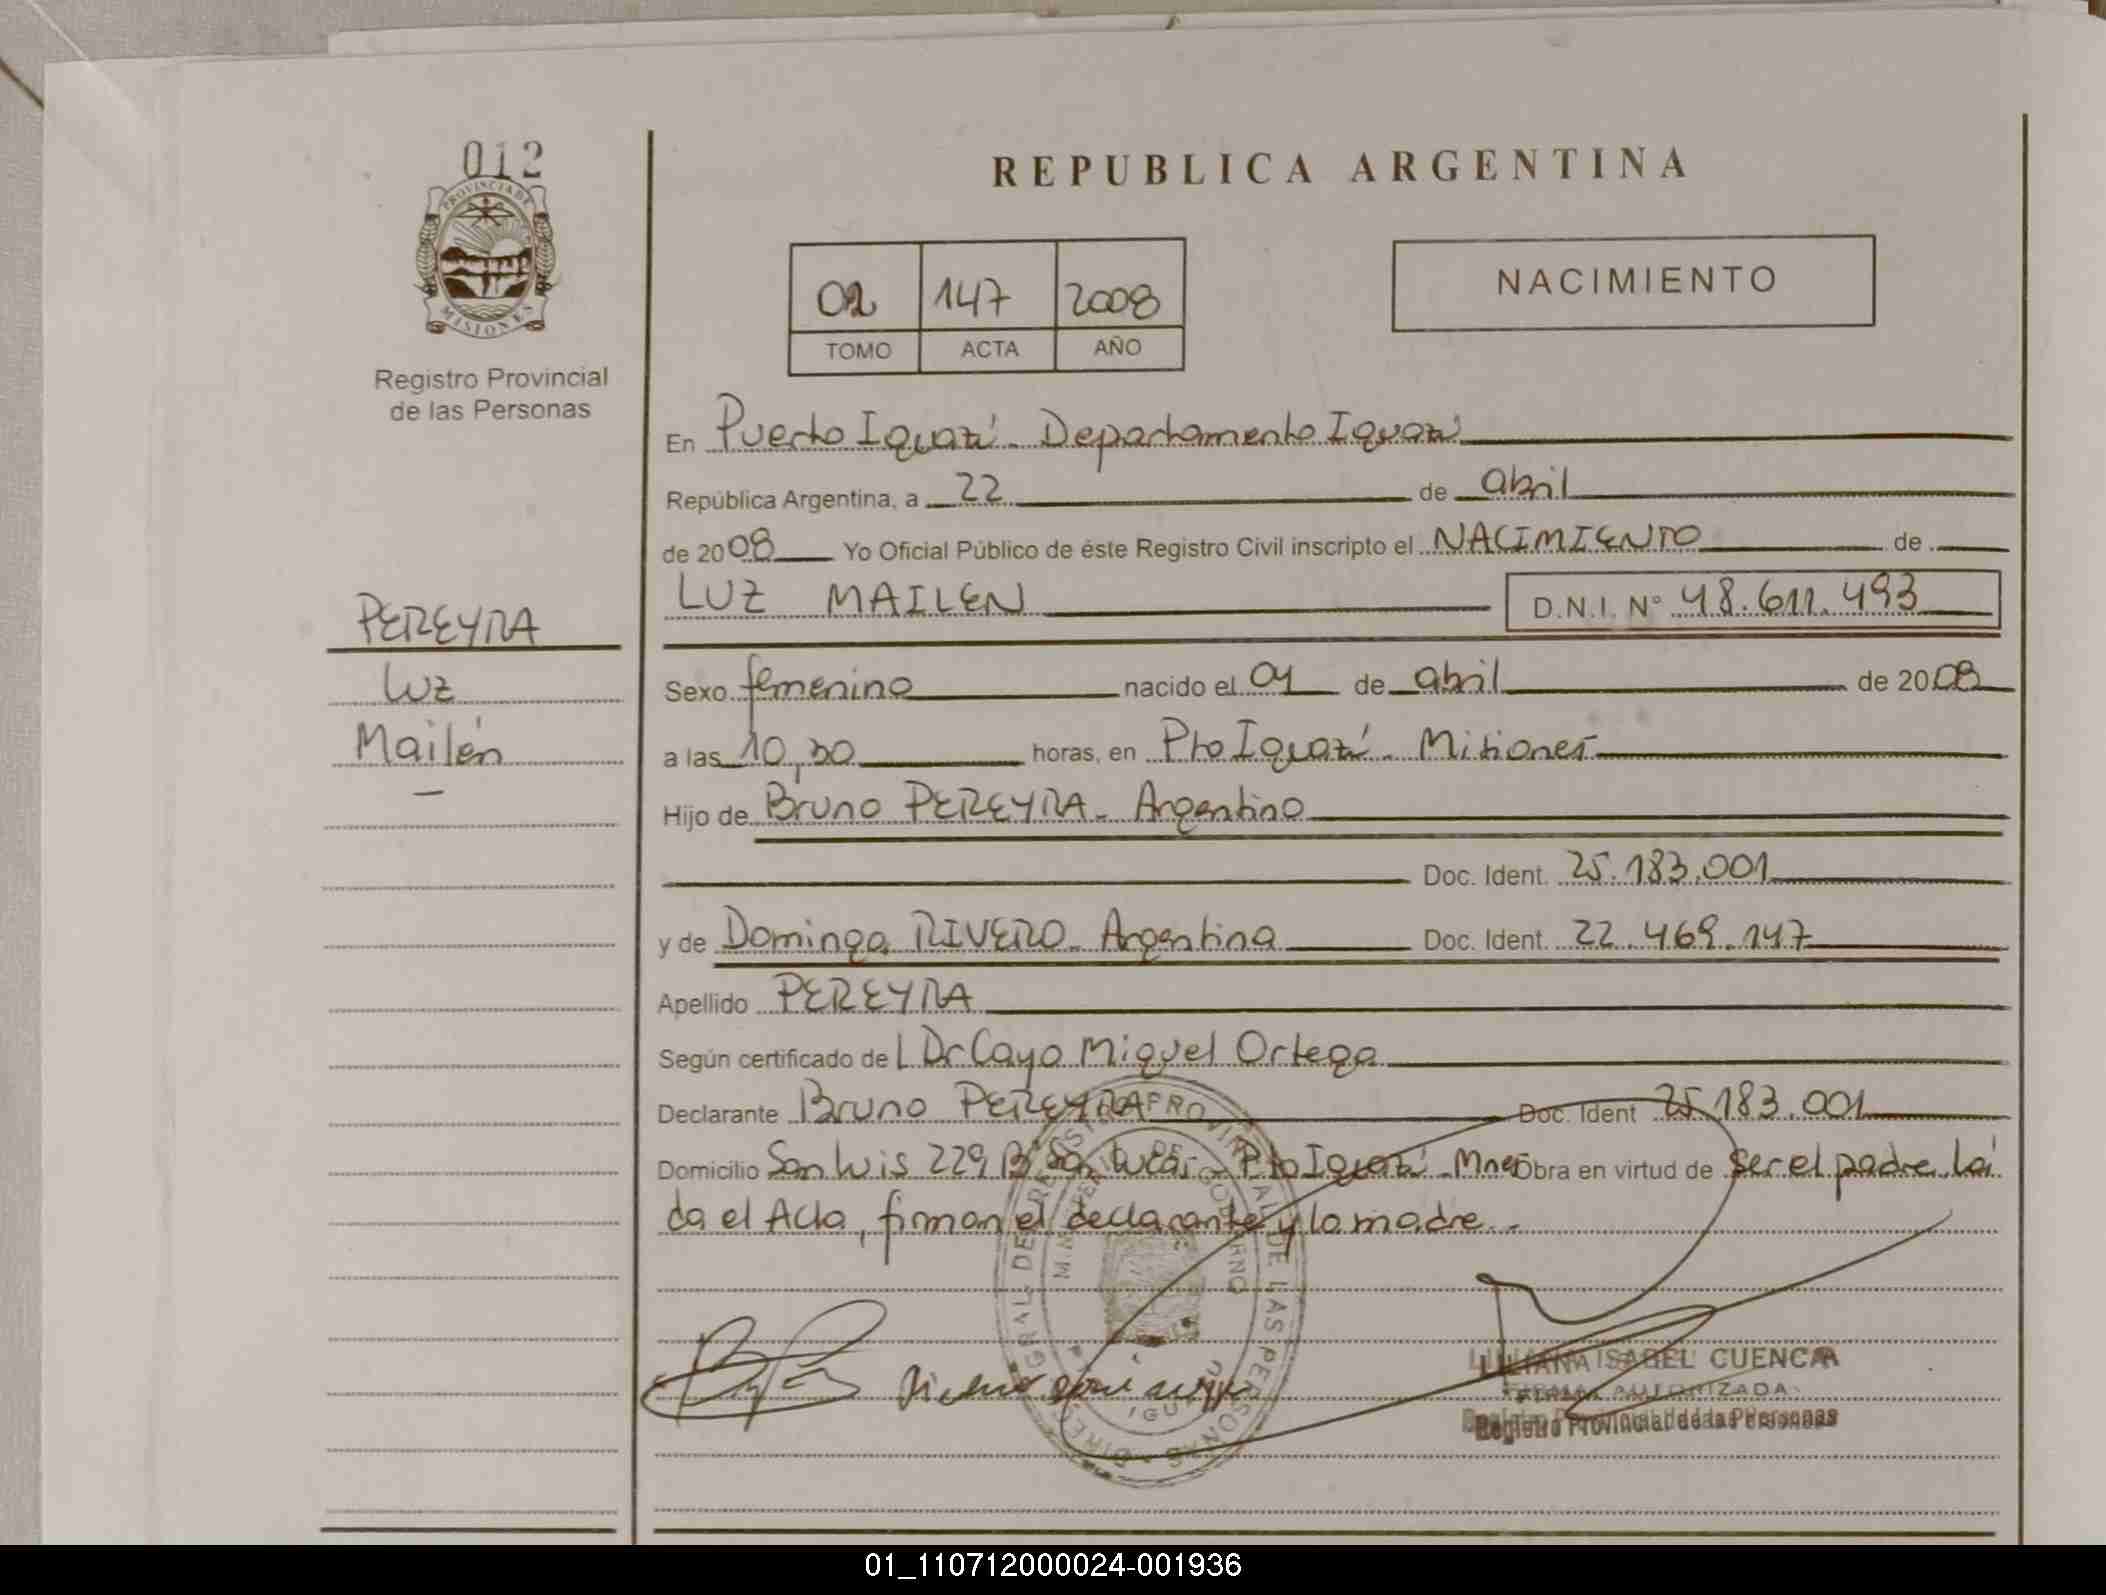 012
PROVINCIA DE
MISIONES
Registro Provincial
de las Personas
PEREYRA
Luz
Mailén
REPUBLICA ARGENTINA
02 147 2008
TOMO ACTA AÑO
NACIMIENTO
En Puerto Iguazú - Departamento Iguazú
República Argentina, a 22 de abril
de 2008 Yo Oficial Público de éste Registro Civil inscripto el NACIMIENTO de
LUZ MAILEN D.N.I. Nº 48.611.493
Sexo femenino nacido el 01 de abril de 2008
a las 10,30 horas, en Pto Iguazú - Misiones
Hijo de Bruno PEREYRA - Argentino
Doc. Ident. 25.183.001
y de Dominga RIVERO - Argentina Doc. Ident. 22.469.147
Apellido PEREYRA
Según certificado de L Dr Cayo Miguel Ortega
Declarante Bruno PEREYRA Doc. Ident 25.183.001
Domicilio San Luis 229 Bº San Lucas - Pto Iguazú - Mnes Obra en virtud de ser el padre. Leí
da el Acta, firman el declarante y la madre. -
DIREC GRAL DE REGISTRO PROVINCIAL DE LAS PERSONAS
DE GOBIERNO
LILIANA ISABEL CUENCA
FIRMA AUTORIZADA
Registro Provincial de las Personas
01_110712000024-001936